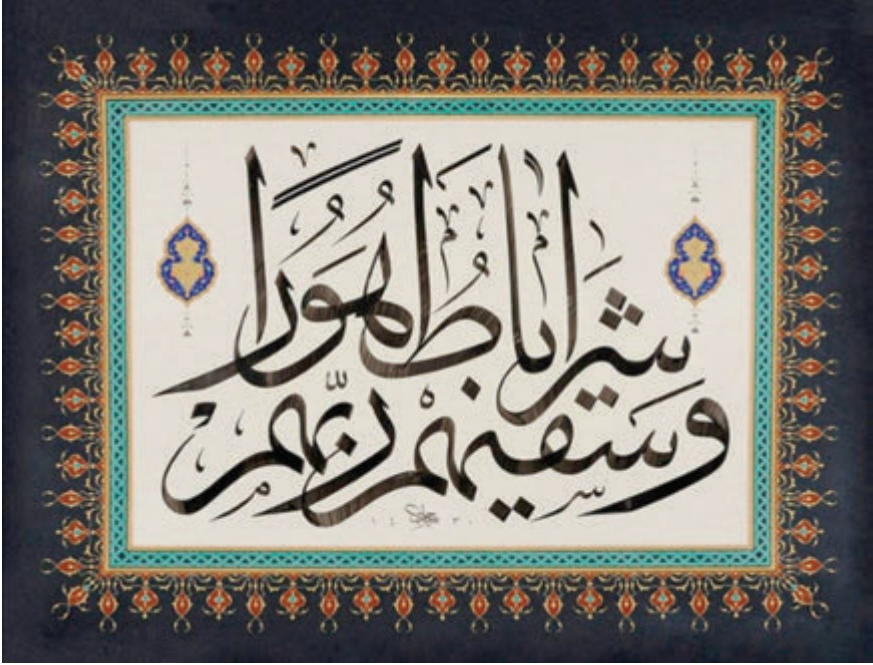 وَسَقٰيهُمْ رَبُّهُمْ
شَرَابًا طَهُورًا
١٤٣٠